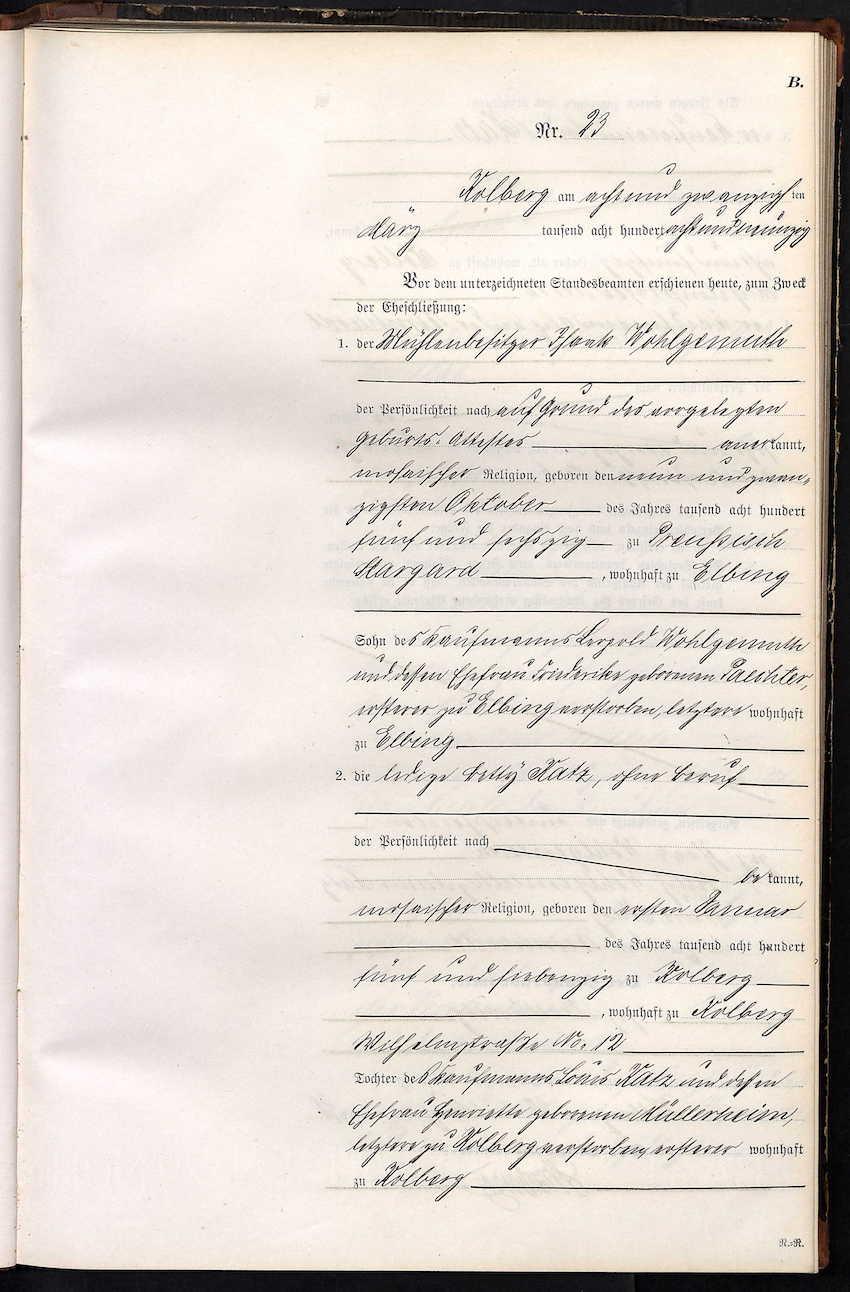 B.
Nr. 23
Kolberg am acht und zwanzigsten
März tausend acht hundert acht und neunzig
Vor dem unterzeichneten Standesbeamten erschienen heute, zum Zweck
der Eheschließung:
1. der Mühlenbesitzer Isaak Wohlgemuth
der Persönlichkeit nach auf Grund des vorgelegten
Geburts-Attestes anerkannt,
mosaischer Religion, geboren den neun und zwan-
zigsten Oktober des Jahres tausend acht hundert
fünf und sechszig zu Preußisch
Stargard, wohnhaft zu Elbing
Sohn des Kaufmanns Leopold Wohlgemuth
und dessen Ehefrau Friederike geborenen Paechter,
ersterer zu Elbing verstorben, letztere wohnhaft
zu Elbing
2. die ledige Betty Katz, ohne Beruf
der Persönlichkeit nach
bekannt,
mosaischer Religion, geboren den ersten Januar
des Jahres tausend acht hundert
fünf und siebenzig zu Kolberg
, wohnhaft zu Kolberg
Wilhelmstraße No. 12
Tochter des Kaufmanns Louis Katz und dessen
Ehefrau Henriette geborenen Müllerheim,
letztere zu Kolberg verstorben, ersterer wohnhaft
zu Kolberg
R.-R.